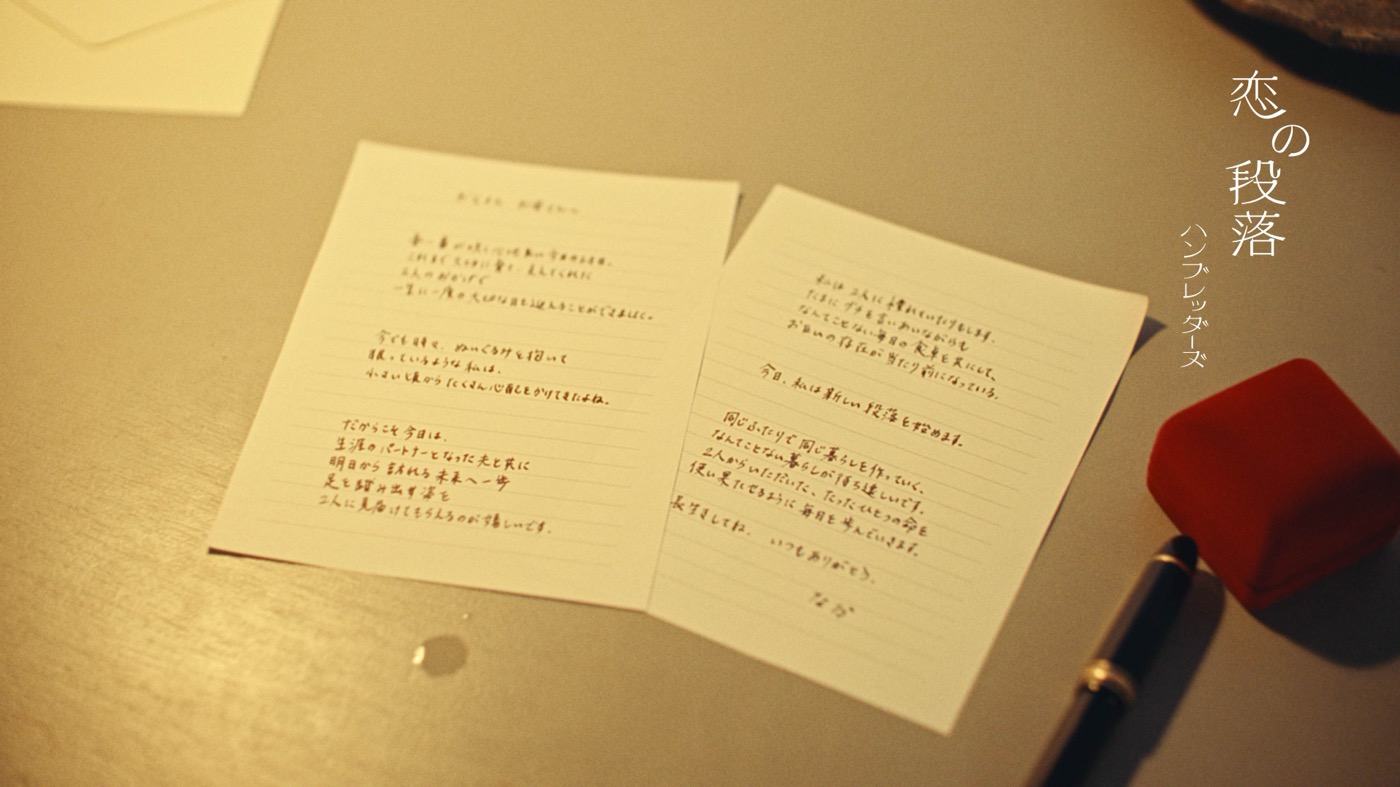 恋の段落
ハンブレッダーズ
お父さん お母さんへ
春一番が
これまで大切に育て、支えてくれた
2人のおかげで
一生に一度の大切な日を迎えることができました。
今でも時々、ぬいぐるみを抱いて
眠っているような私は、
小さい頃からたくさん心配をかけてきたよね。
だからこそ今日は、
生涯のパートナーとなった夫と共に
明日から訪れる未来へ一歩
足を踏み出す姿を
2人に見届けてもらえるのが嬉しいです。
私は2人に憧れていたりもします。
たまにグチを言いあいながらも
なんてことない毎日の食卓を共にして、
お互いの存在が当たり前になっている。
今日、私は新しい段落を始めます。
同じふたりで同じ暮らしを作っていく、
なんてことない暮らしが待ち遠しいです。
2人からいただいた、たったひとつの命を
使い果たせるように毎日を歩んでいきます。
長生きしてね。 いつもありがとう。